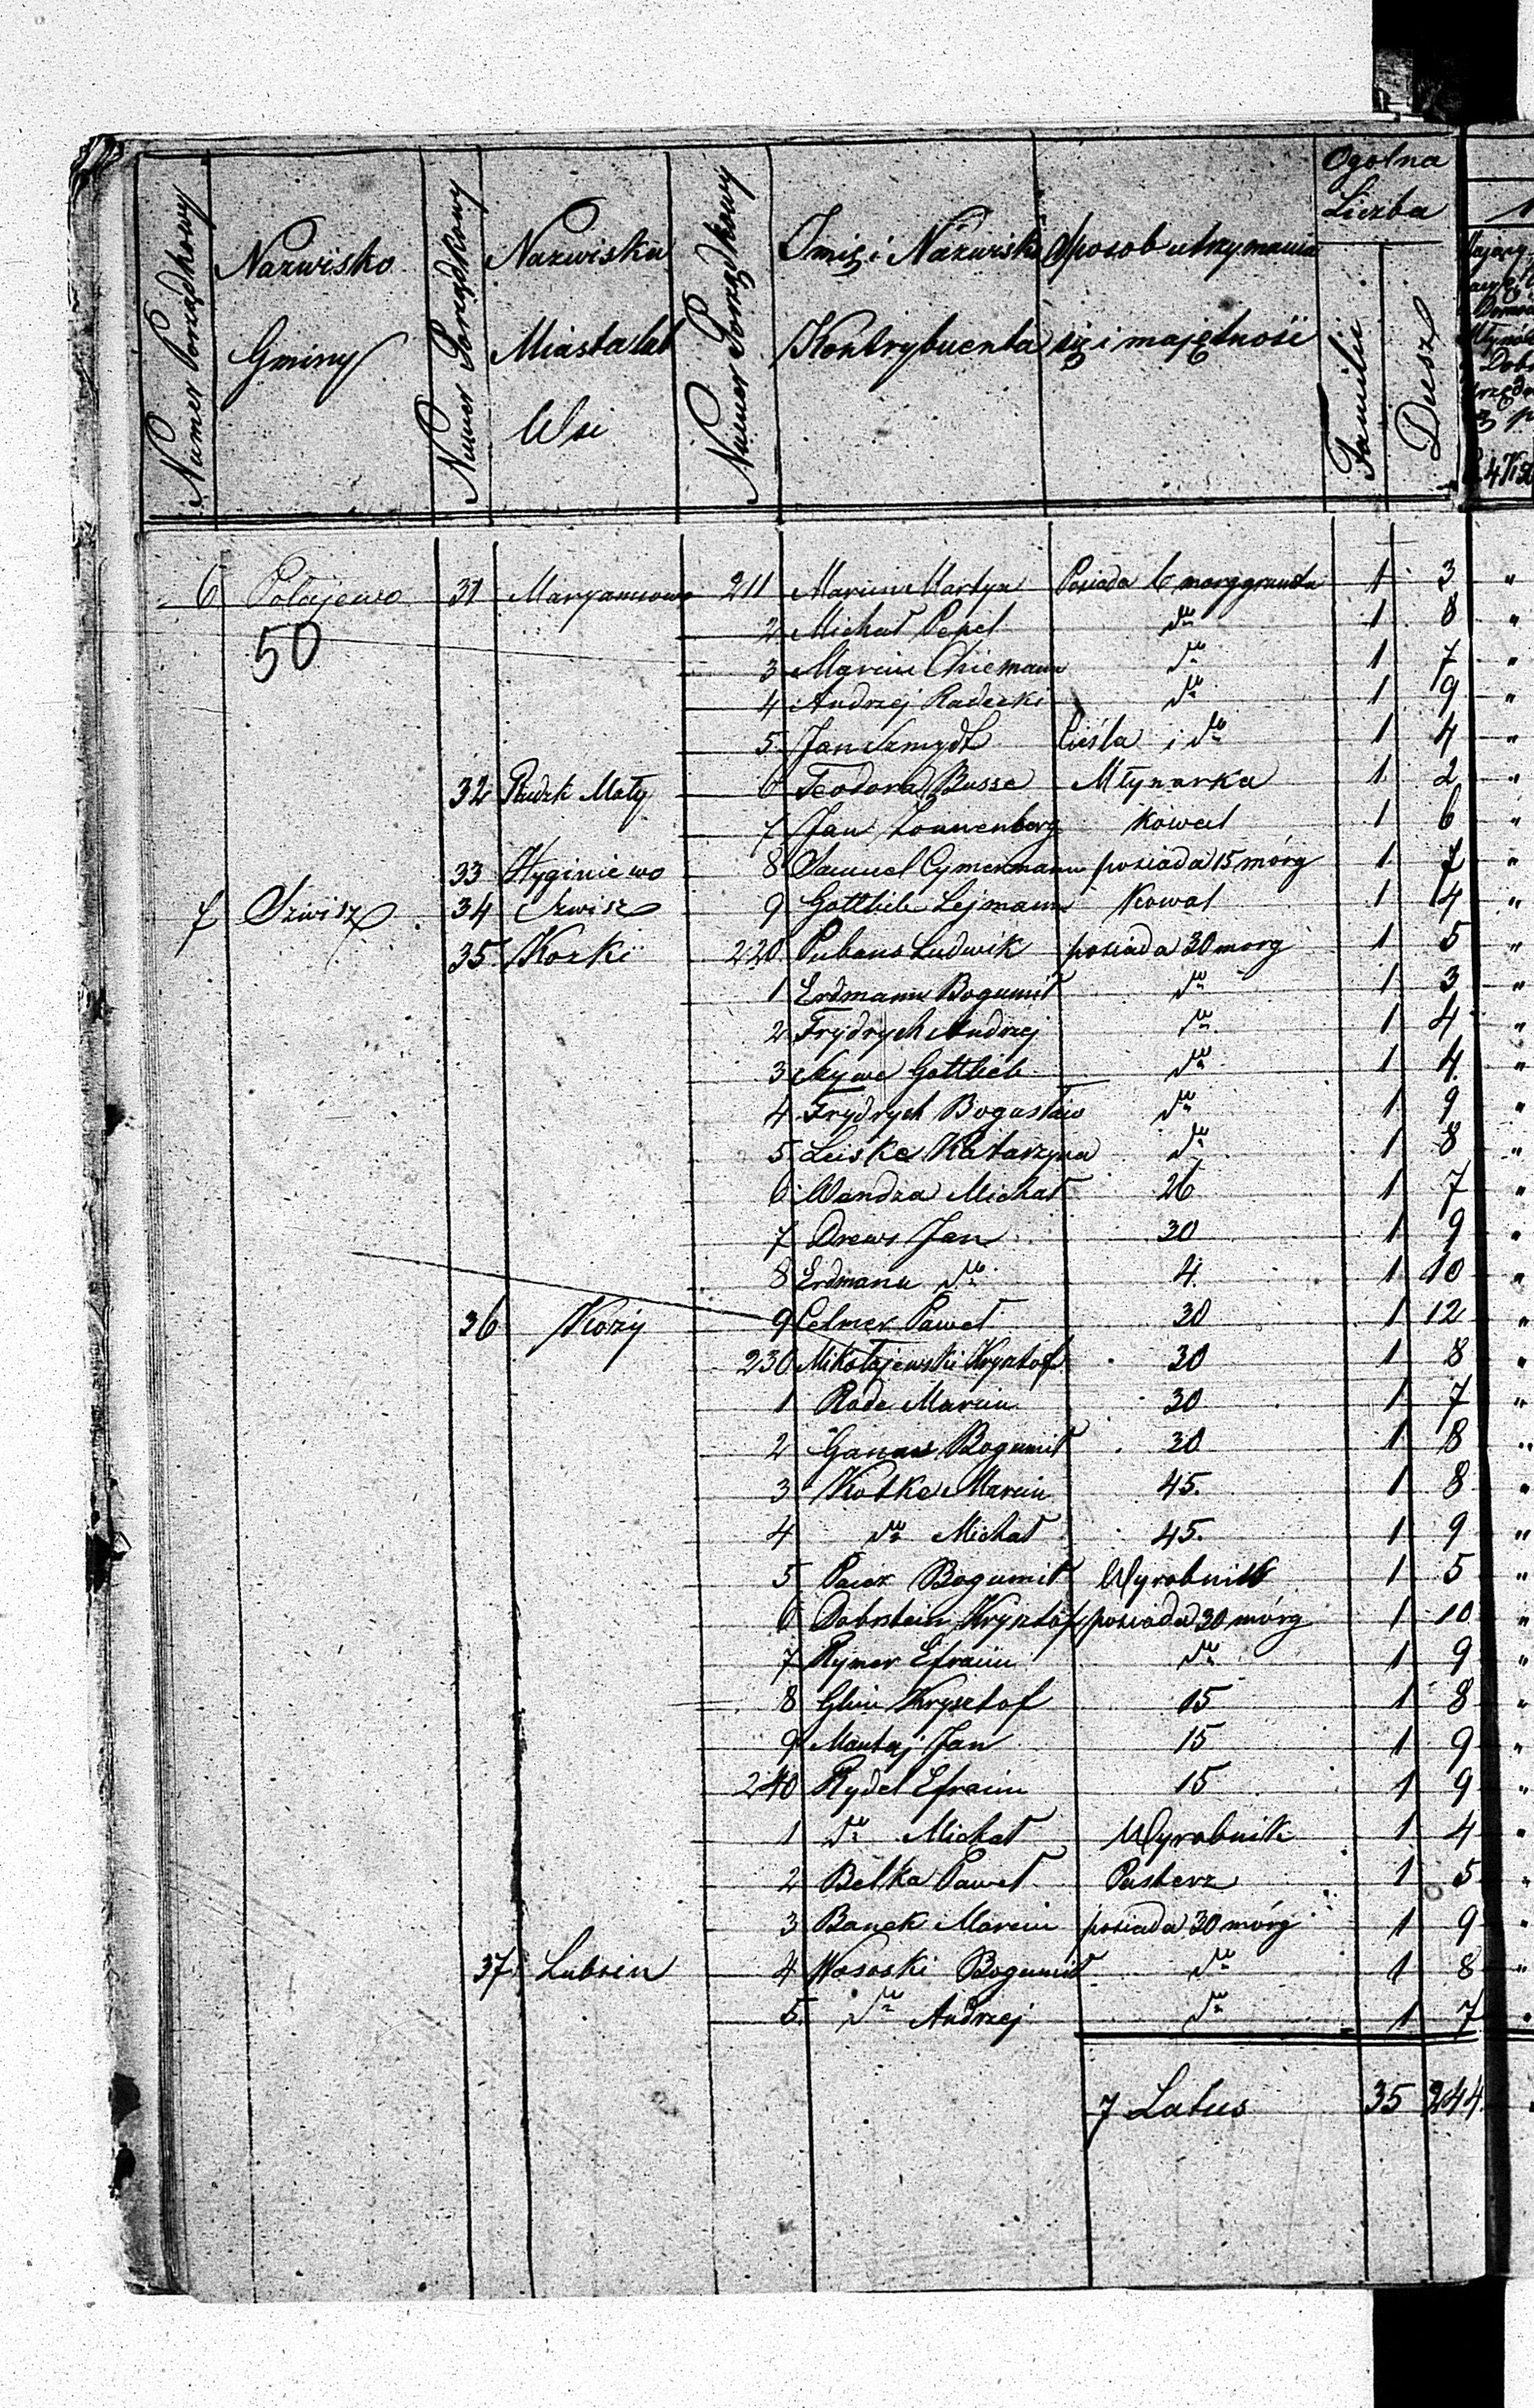 Numer Porządkowy | Nazwisko Gminy | Numer Porządkowy | Nazwisko Miasta lub Wsi | Numer Porządkowy | Imię i Nazwisko Kontrybuenta | Sposob utrzymania się i majętność | Ogolna Liczba | Familii | Dusz
6 Połajewo 31 Maryanowo 211 Marcin Martyn Posiada 6 morg gruntu 1 3 "
50
2 Michał Pepel dto 1 8 "
3 Marcin Thiemann dto 1 7 "
4 Andrzej Radecki dto 1 9 "
5 Jan Szmydt Cieśla i dto 1 4 "
32 Rudzk Mały 6 Teodora Busse Młynarka 1 2 "
7 Jan Zonnenberg Kowal 1 6 "
33 Hyginiewo 8 Samuel Cymermann posiada 15 mórg 1 7 "
7 Szwisz 34 Szwisz 9 Gottlieb Lejmann Kowal 1 4 "
35 Kozki 220 Pubans Ludwik posiada 30 morg 1 5 "
1 Erdmann Bogumił dto 1 3 "
2 Frydrych Andrzej dto 1 4 "
3 Gottlieb dto 1 4 "
4 Frydrych Bogusław dto 1 9 "
5 Leiske Katarzyna dto 1 8 "
6 Wandza Michał 26 1 7 "
7 Drews Jan 30 1 9 "
8 Erdmann dto 4 1 10 "
36 Kozy 9 Celmer Paweł 30 1 12 "
230 Mikołajewski Krysztof 30 1 8 "
1 Rode Marcin 30 1 7 "
2 Ganaus Bogumił 30 1 8 "
3 Kotke Marcin 45. 1 8 "
4 dto Michał 45. 1 9 "
5 Bogumił Wyrobnik 1 5 "
6 Dobrstein Krysztof posiada 30 mórg 1 10 "
7 Rymer Efraim dto 1 9 "
8 Glin Krysztof 15 1 8 "
9 Mantaj Jan 15 1 9 "
240 Rydel Efraim 15 1 9 "
1 dto Michał Wyrobnik 1 4 "
2 Belka Paweł Pasterz 1 5 "
3 Banek Marcin posiada 30 mórg 1 9 "
37 Lubsin 4 Wososki Bogumił dto 1 8 "
5 dto Andrzej dto 1 7 "
7 Latus 35 244